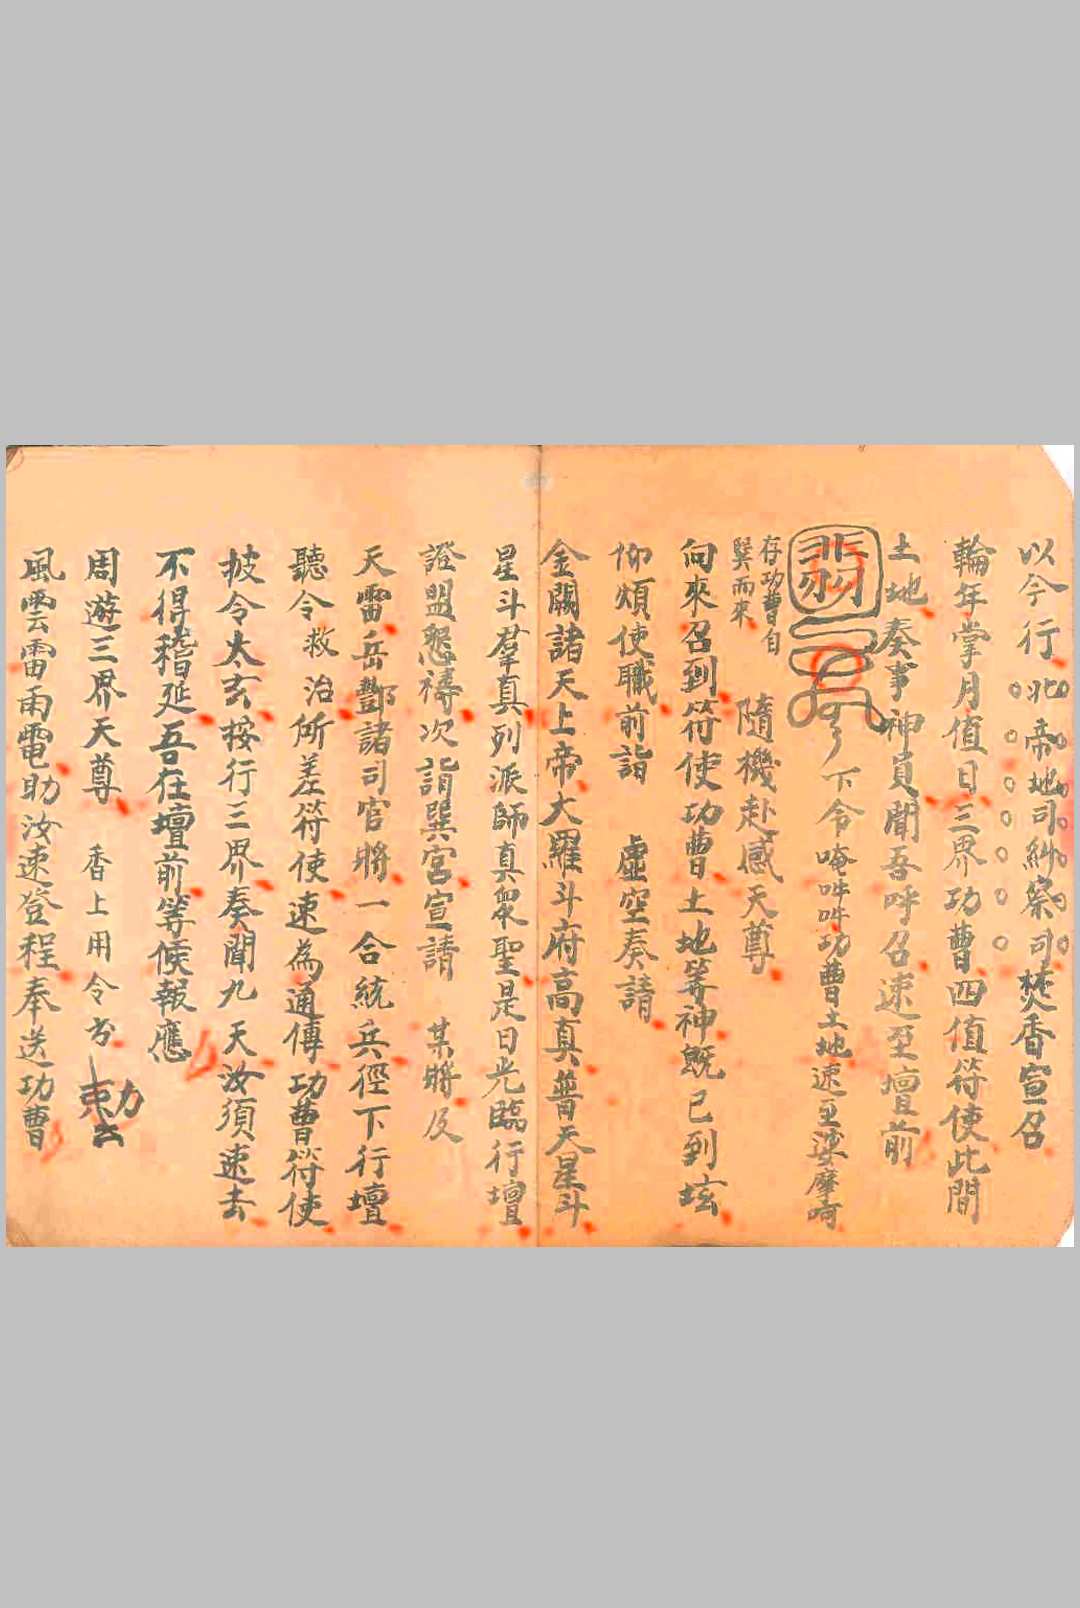 以今行北帝地司糾察司焚香宣召
輪年掌月值日三界功曹四值符使此間
土地奏事神員聞吾呼召速至壇前
下令唵吽吽功曹土地速至娑摩呵
存功曹自
巽而來
隨機赴感天尊
向來召到符使功曹土地等神既已到坛
仰煩使職前詣 虛空奏請
金闕諸天上帝大羅斗府高真普天星斗
星斗羣真列派師真眾聖是日光臨行壇
證盟懇禱次詣巽宮宣請 某將及
天雷岳酆諸司官將一合統兵徑下行壇
聽令救治所差符使速為通傳功曹符使
披令太玄按行三界奏聞九天汝須速去
不得稽延吾在壇前等候報應
周遊三界天尊 香上用令
風雲雷雨電助汝速登程奉送功曹